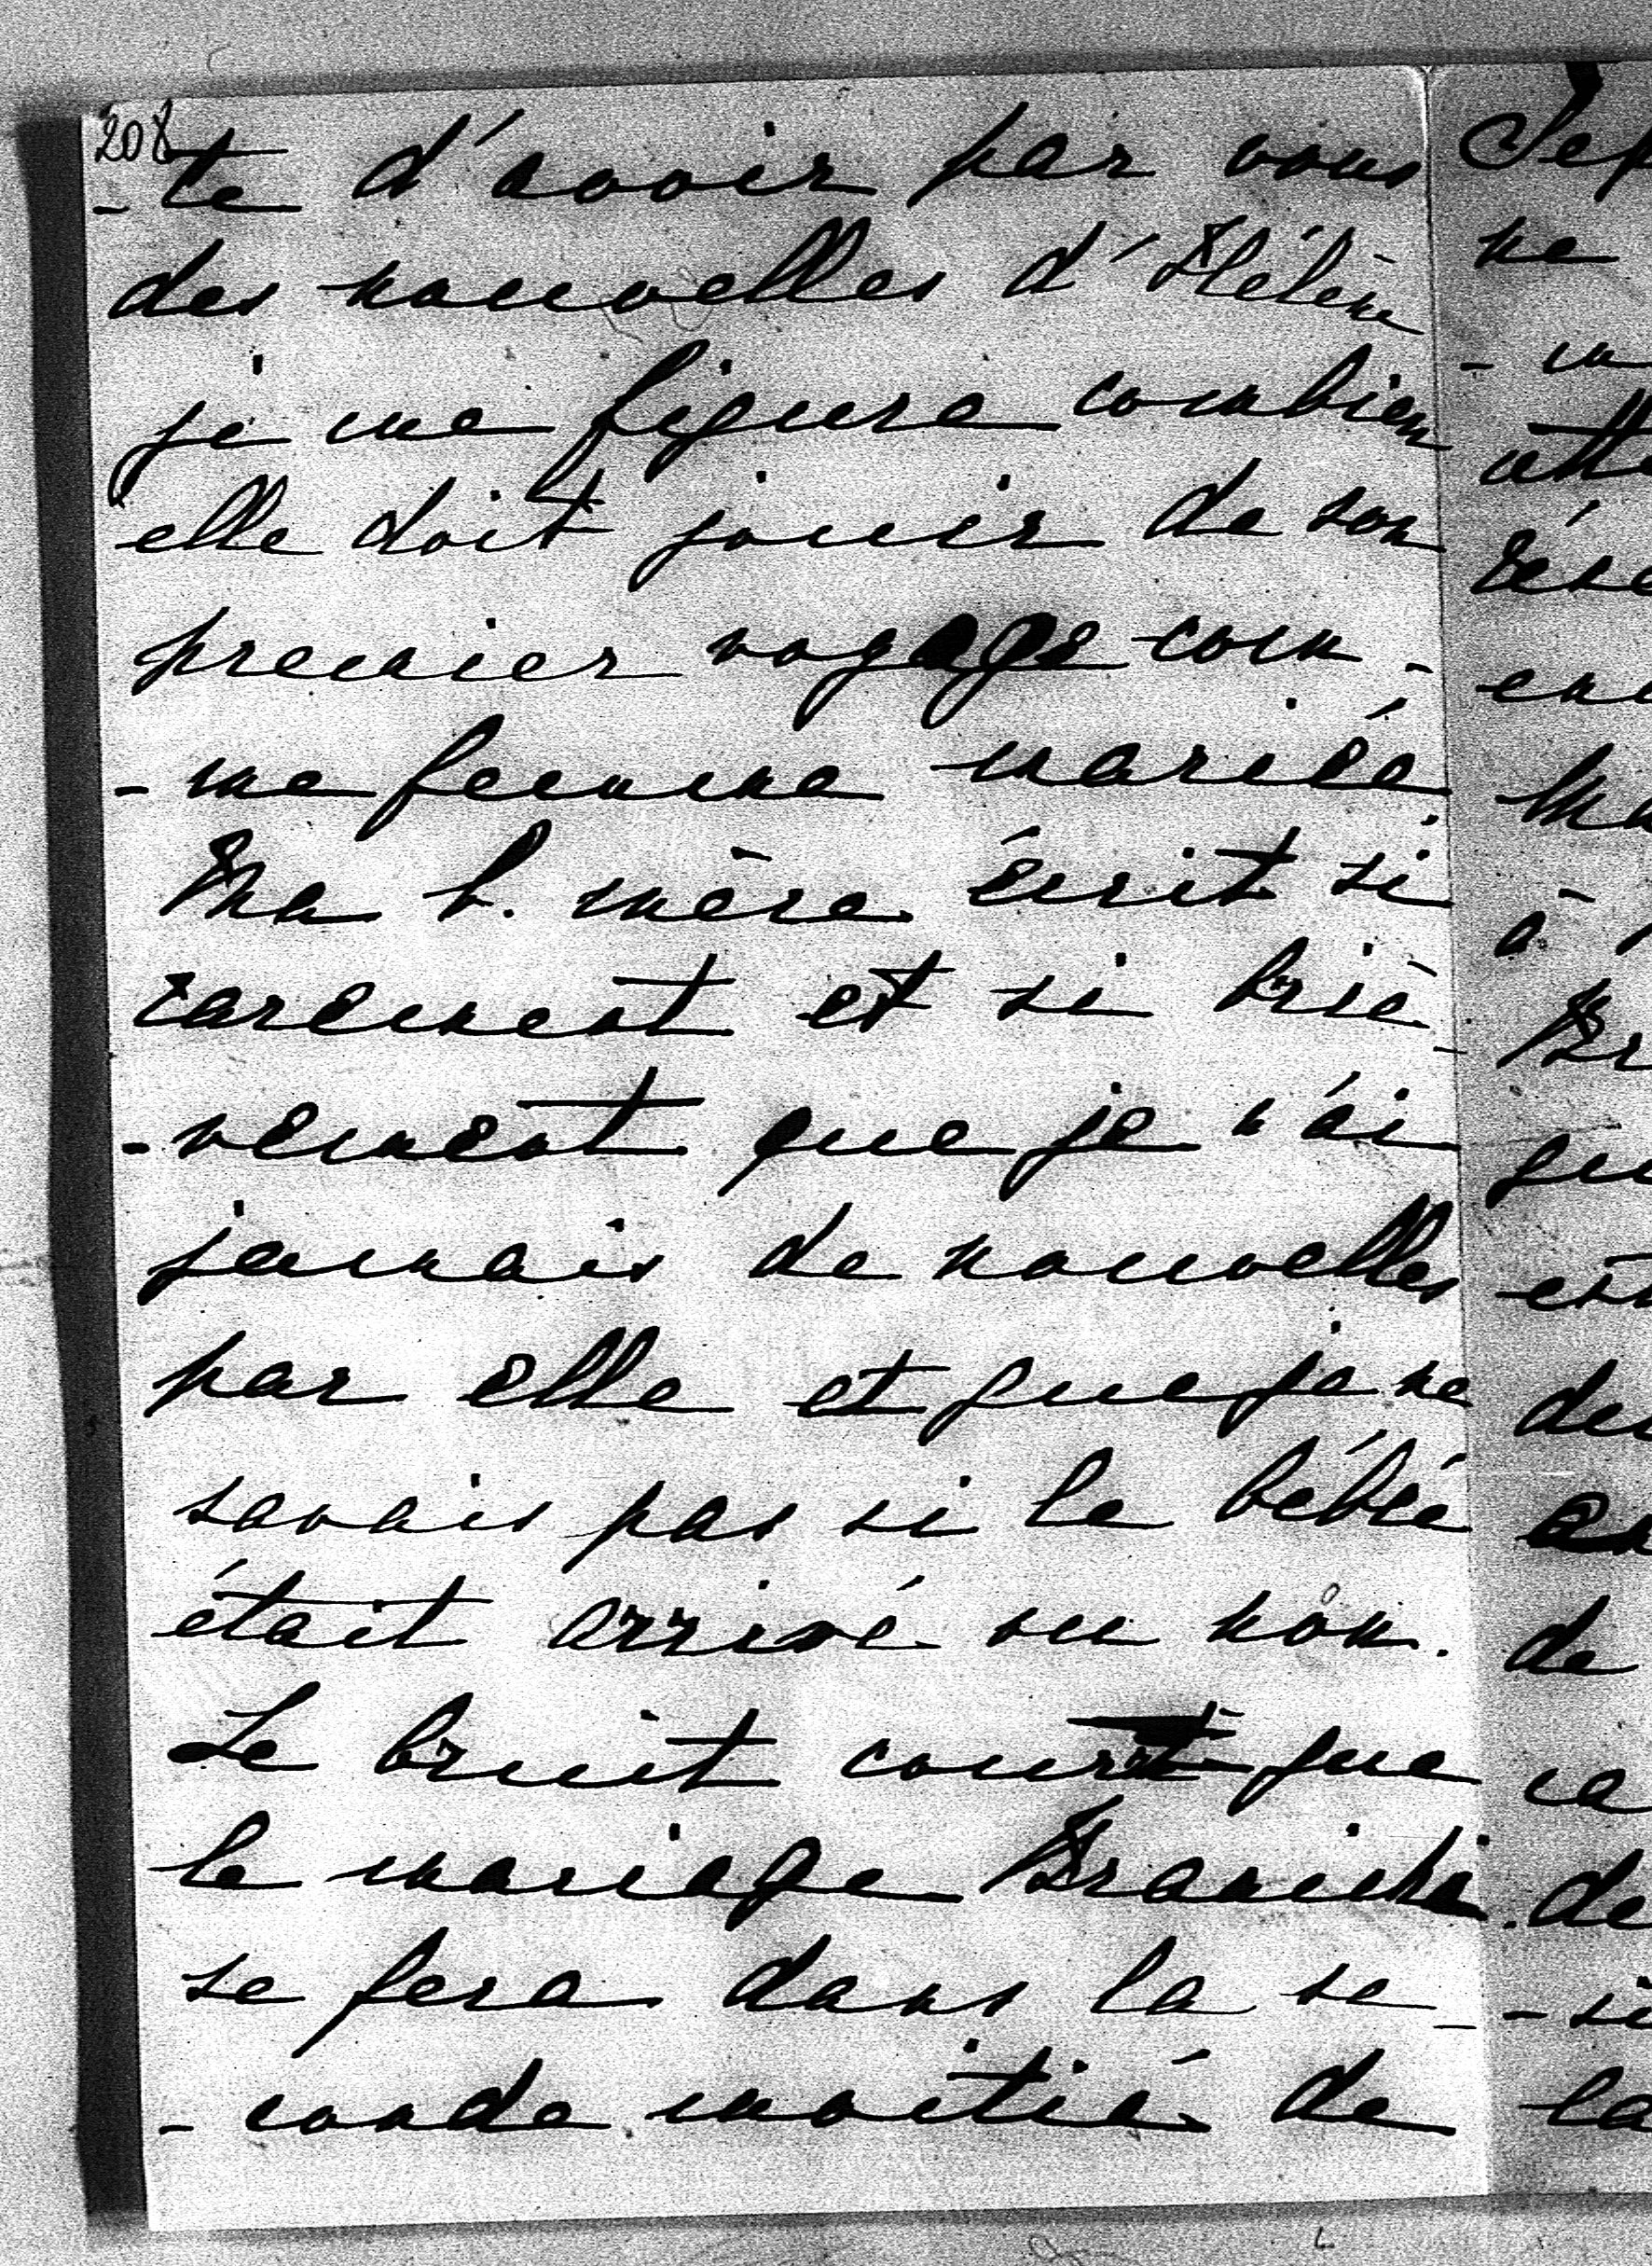 208
-te d'avoir par vous
des nouvelles d'Hélène
je me figure combien
elle doit jouir de son
premier voyage com-
-me femme mariée
Ma b. mère écrit si
rarement et si briè-
-vement que je n'ai
jamais de nouvelles
par elle et que je ne
savais pas si le bébé
était arrivé ou non.
Le bruit court que
le mariage Branicki
se fera dans la se-
-conde moitié de
Sep
ne
de
la